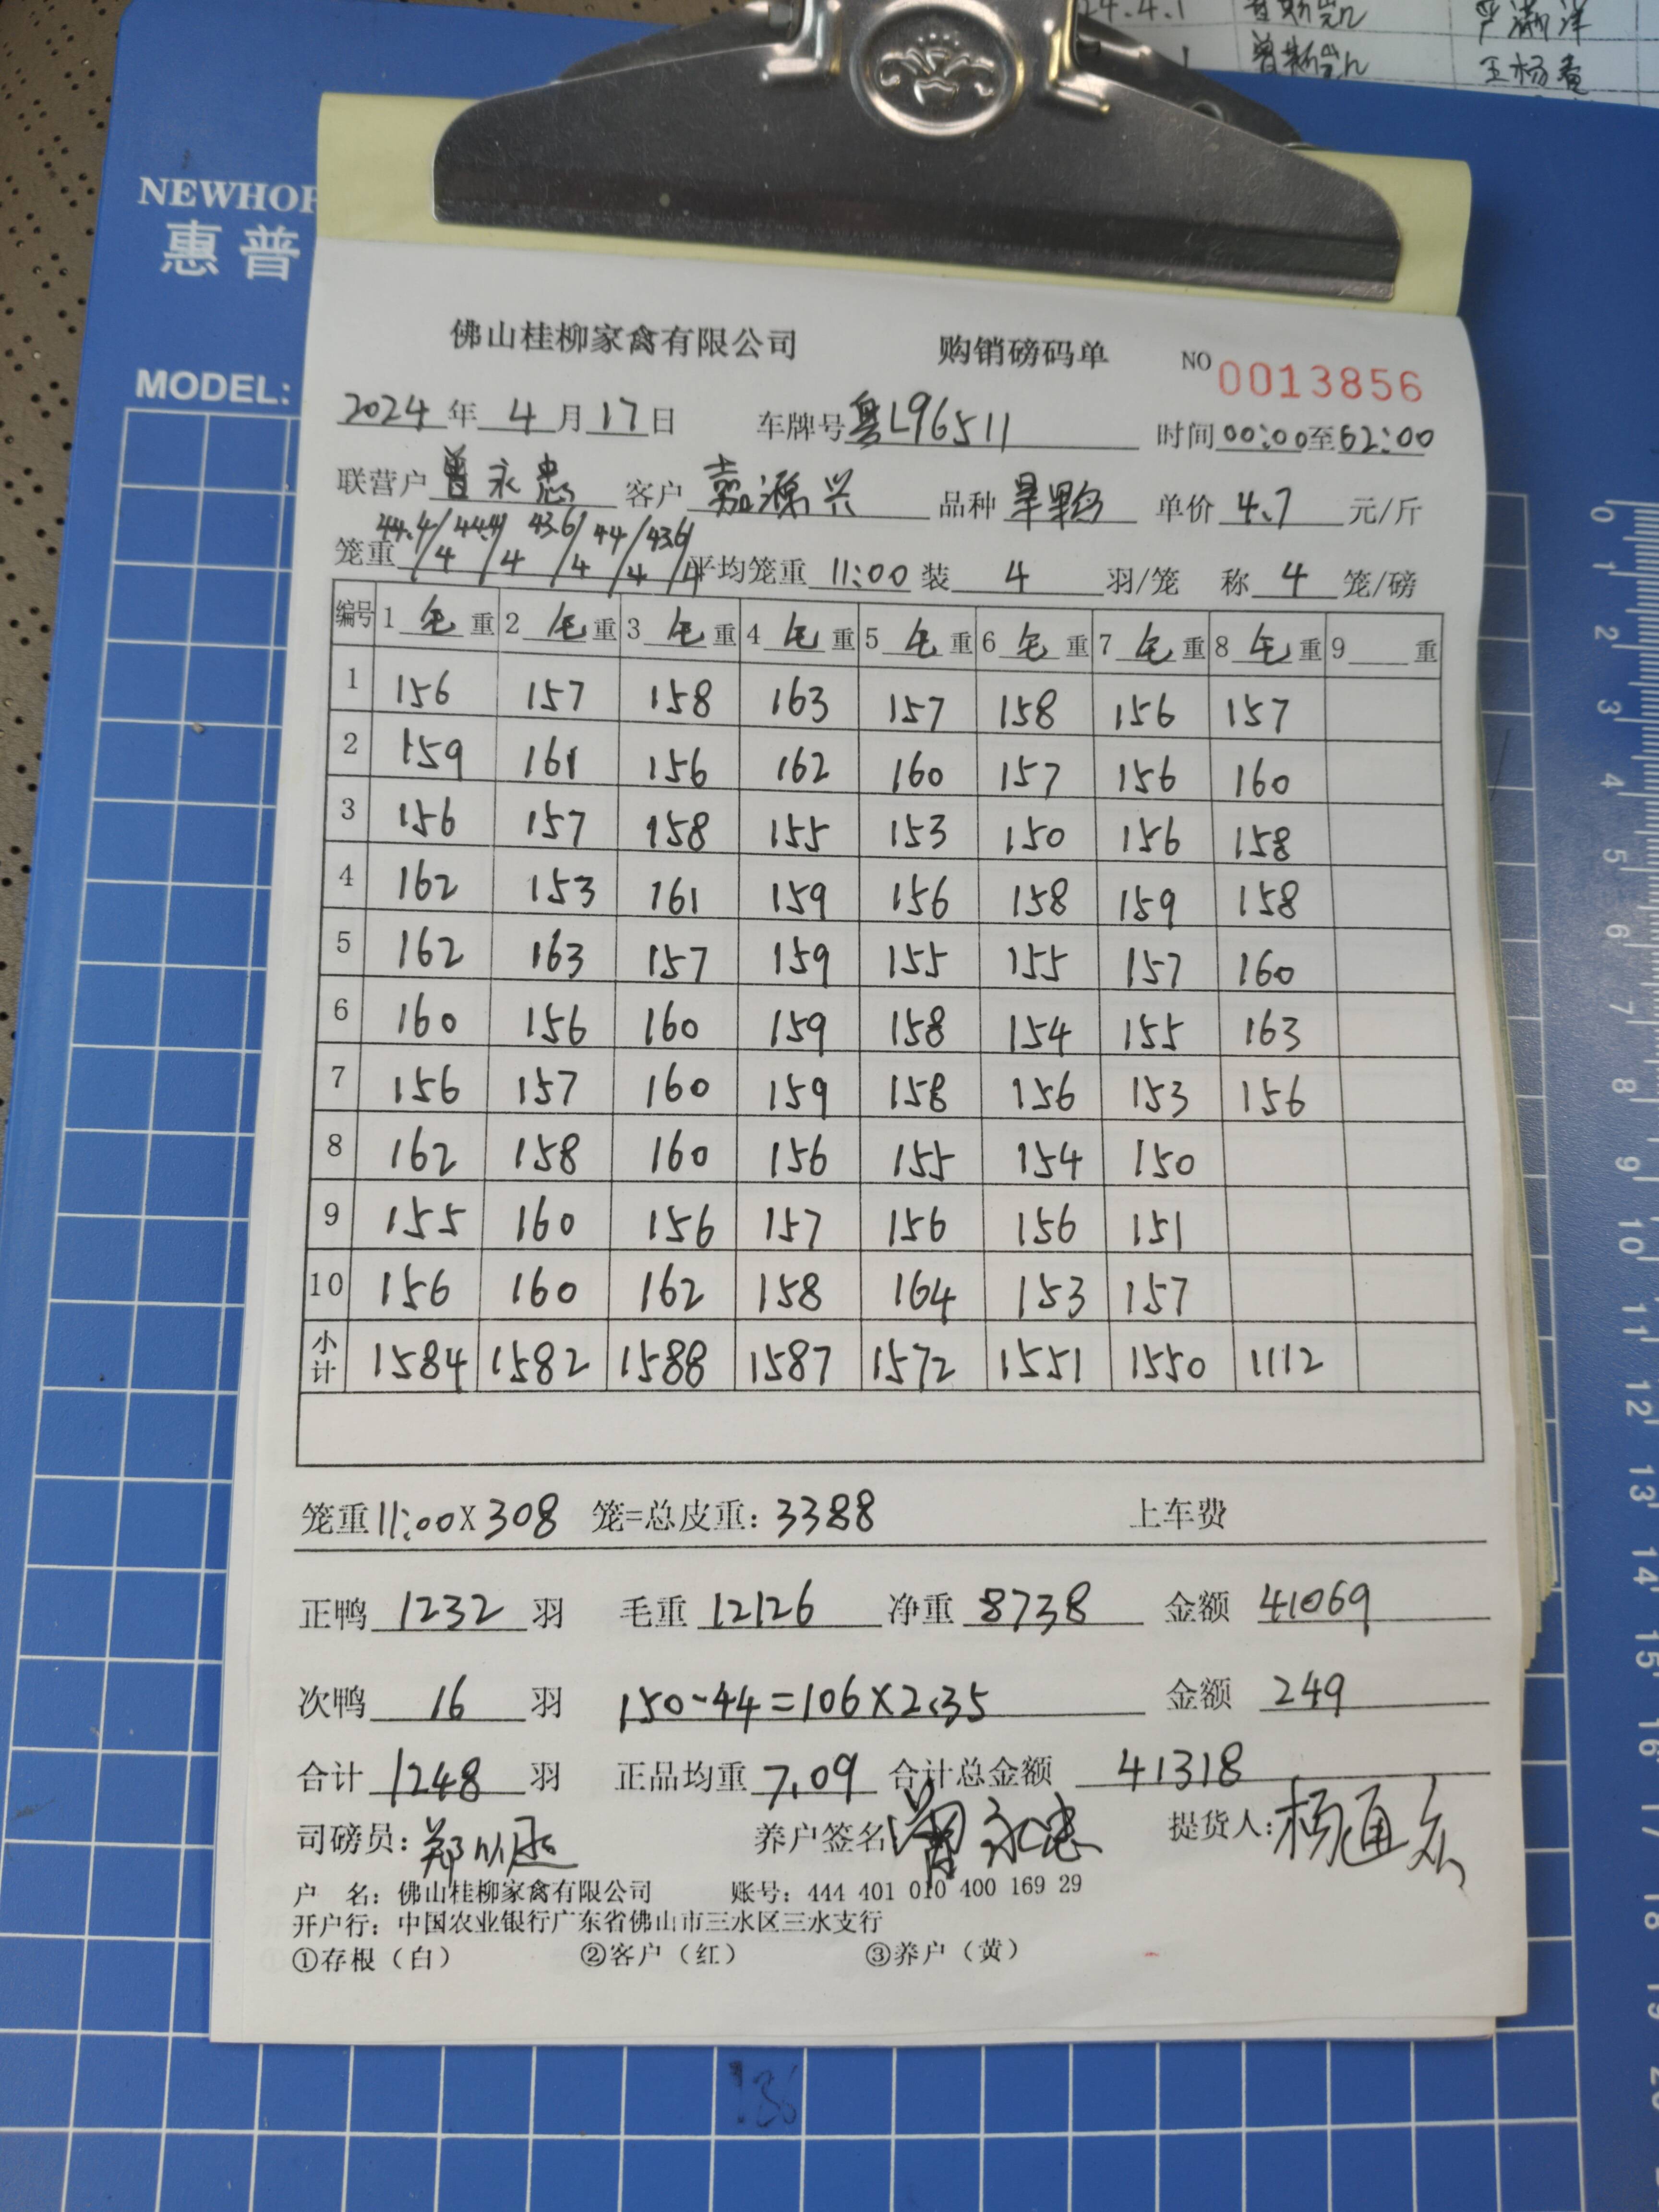 24.4.1
王杨
NEWHOP
惠普
MODEL:
佛山桂柳家禽有限公司 购销磅码单 NO 0013856
2024年4月17日 车牌号粤L96511 时间00:00至02:00
联营户曾永忠 客户嘉源兴 品种 单价4.7元/斤
笼重44.4/4 44.4/4 43.6/4 44/4 43.6/4 平均笼重11:00装4羽/笼 称4笼/磅
编号 1毛重 2毛重 3毛重 4毛重 5毛重 6毛重 7毛重 8毛重 9重
1 156 157 158 163 157 158 156 157
2 159 161 156 162 160 157 156 160
3 156 157 158 155 153 150 156 158
4 162 153 161 159 156 158 159 158
5 162 163 157 159 155 155 157 160
6 160 156 160 159 158 154 155 163
7 156 157 160 159 158 156 153 156
8 162 158 160 156 155 154 150
9 155 160 156 157 156 156 151
10 156 160 162 158 164 153 157
小计 1584 1582 1588 1587 1572 1551 1550 1112
笼重11:00X308笼=总皮重:3388 上车费
正鸭1232羽 毛重12126 净重8738 金额41069
次鸭16羽 150-44=106×2.35 金额249
合计1248羽 正品均重7.09 合计总金额41318
司磅员: 养户签名曾永忠 提货人:杨通
户 名:佛山桂柳家禽有限公司 账号:444 401 010 400 169 29
开户行:中国农业银行广东省佛山市三水区三水支行
①存根(白) ②客户(红) ③养户(黄)
0
1
2
3
4
5
6
7
8
9
10
11
12
13
14
15
16
18
19